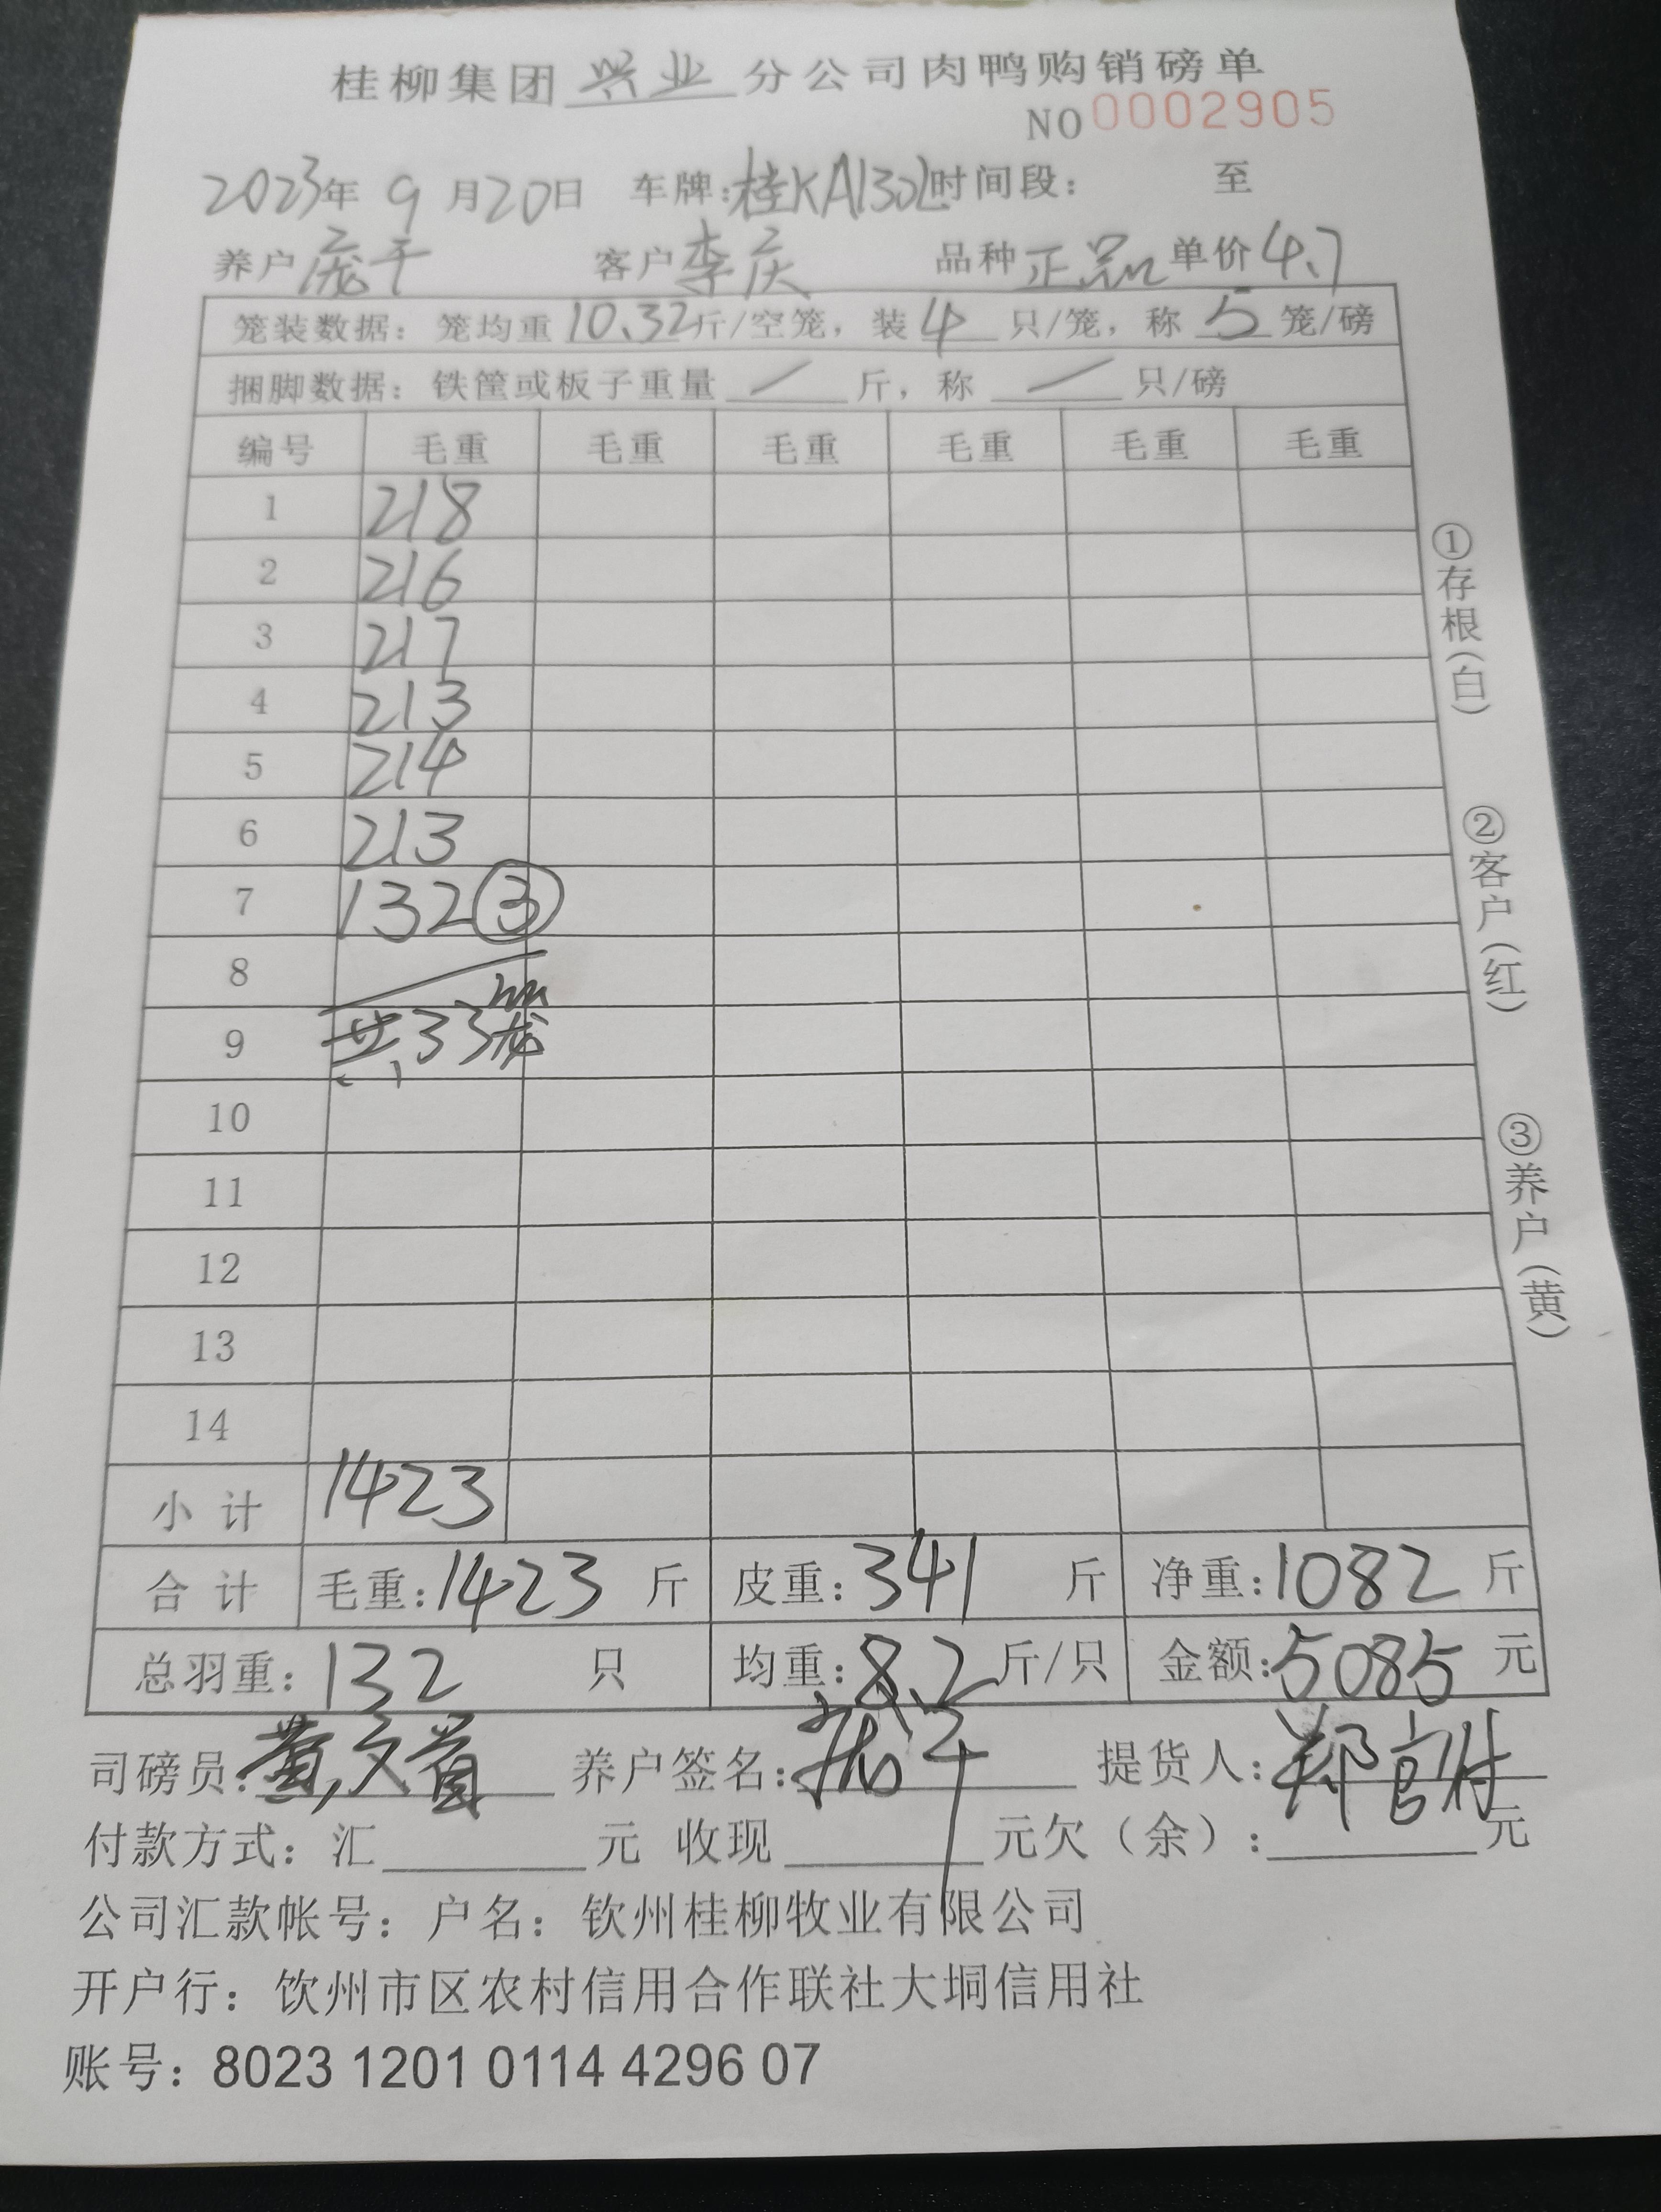 桂柳集团 兴业 分公司肉鸭购销磅单
NO 0002905
2023年 9 月20日 车牌:桂KA1302时间段: 至
养户 庞千 客户 李庆 品种 正品 单价 4.7
笼装数据: 笼均重 10.32斤/空笼, 装 4 只/笼, 称 5 笼/磅
捆脚数据: 铁筐或板子重量 / 斤, 称 / 只/磅
编号 毛重 毛重 毛重 毛重 毛重 毛重
1 218
2 216
3 217
4 213
5 214
6 213
7 132 ③
8
9 共33笼
10
11
12
13
14
小计 1423
合计 毛重:1423 斤 皮重:341 斤 净重:1082 斤
总羽重: 132 只 均重:8.2斤/只 金额:5085 元
司磅员: 黄文 养户签名: 提货人:郑
付款方式: 汇 元 收现 元欠(余): 元
公司汇款帐号: 户名: 钦州桂柳牧业有限公司
开户行: 饮州市区农村信用合作联社大垌信用社
账号: 8023 1201 0114 4296 07
①存根(白)
②客户(红)
③养户(黄)